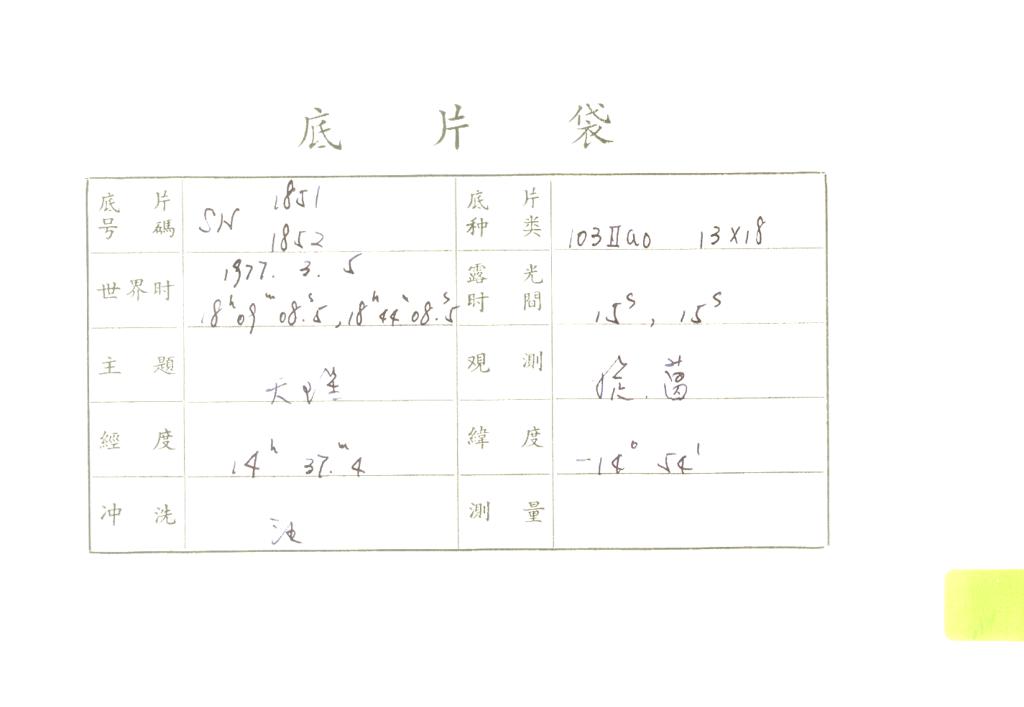 底 片 袋
底 片
号 碼
SN 1851
1852
底 片
种 类
103Ⅱao 13×18
世界时
1977. 3. 5
18ʰ09ᵐ08ˢ.5, 18ʰ44ᵐ08ˢ.5
露 光
时 間
15ˢ, 15ˢ
主 題
观 測
經 度
14ʰ 37ᵐ.4
緯 度
-14° 54′
冲 洗
測 量